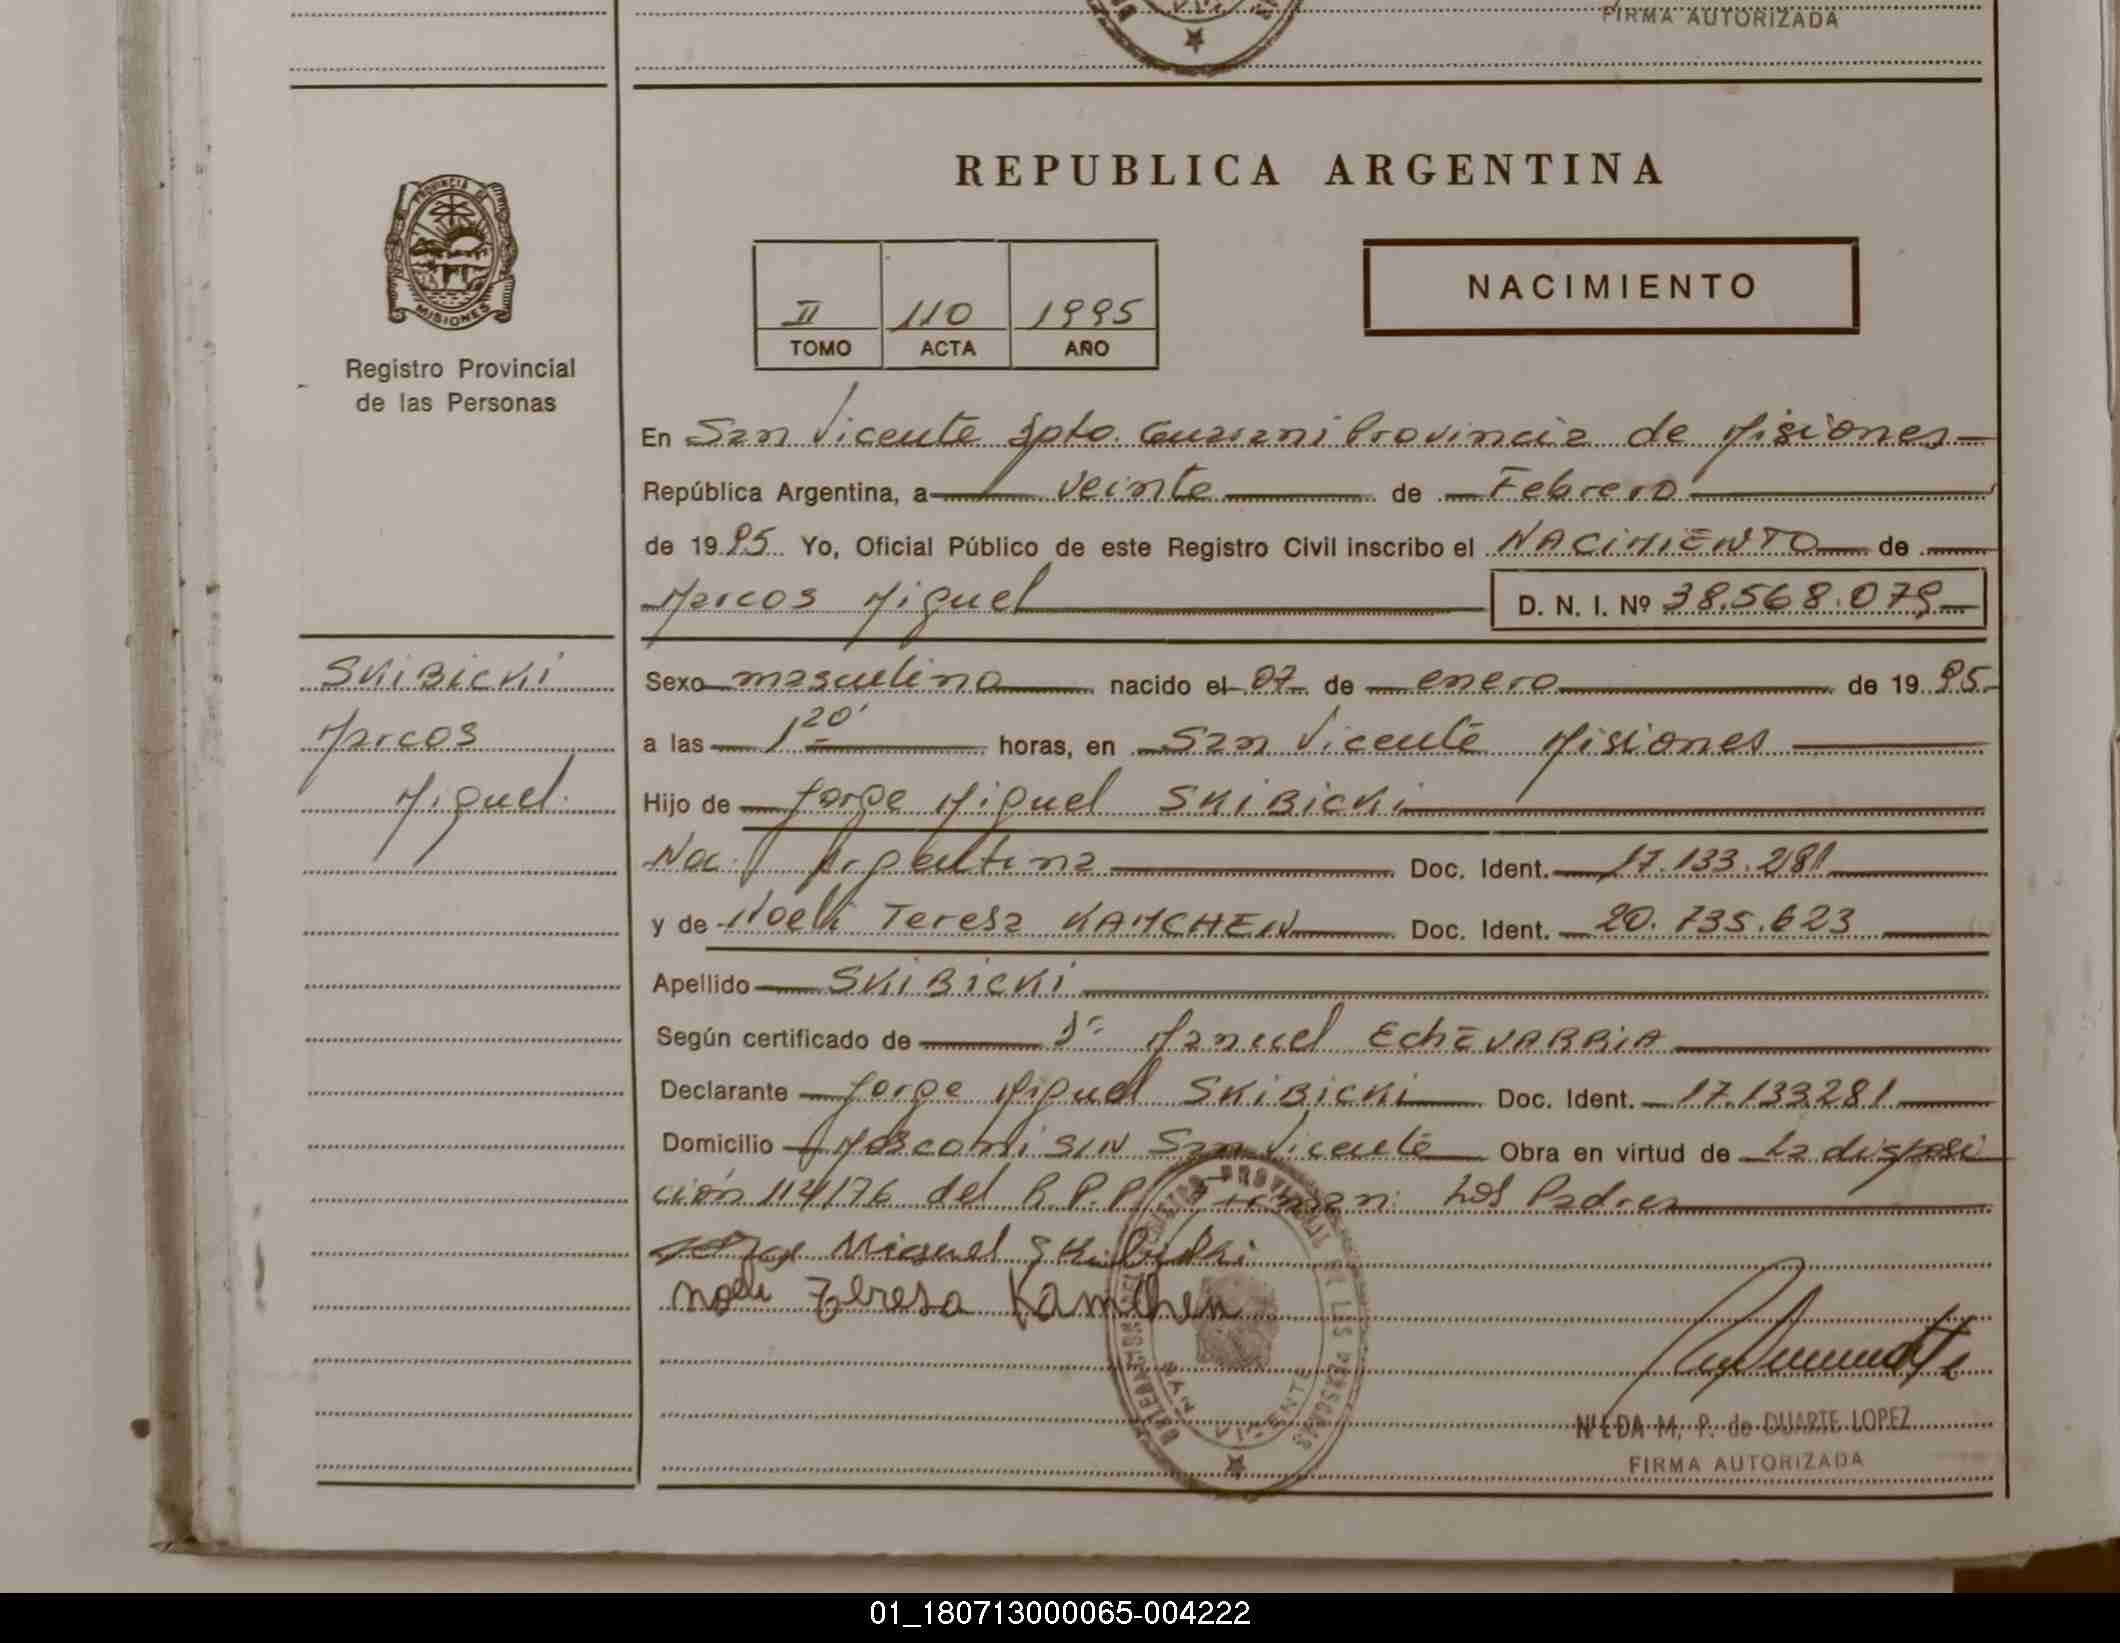 FIRMA AUTORIZADA
REPUBLICA ARGENTINA
PROVINCIA DE
MISIONES
Registro Provincial
de las Personas
II 110 1995
TOMO ACTA AÑO
NACIMIENTO
En San Vicente Dpto. Guarani Provincia de Misiones
República Argentina, a veinte de Febrero
de 1995 Yo, Oficial Público de este Registro Civil inscribo el NACIMIENTO de
Marcos Miguel D. N. I. Nº 38.568.079
SKIBICKI
Marcos
Miguel
Sexo masculino nacido el 07 de enero de 1995
a las 1 20' horas, en San Vicente Misiones
Hijo de Jorge Miguel SKIBICKI
Nac. Argentina Doc. Ident. 17.133.281
y de Noeli Teresa KAMCHEN Doc. Ident. 20.735.623
Apellido SKIBICKI
Según certificado de Dr Manuel EChEVARRIA
Declarante Jorge Miguel SKIBICKI Doc. Ident. 17.133281
Domicilio Mosconi S/N San Vicente Obra en virtud de La disposi
ción 114/76 del R.P.P. Firman: Los Padres
Jorge Miguel Skibicki
Noeli Teresa Kamchen
DELEGACION REGISTRO PROVINCIAL DE LAS PERSONAS
SAN VICENTE
NILDA M. P. de DUARTE LOPEZ
FIRMA AUTORIZADA
01_180713000065-004222